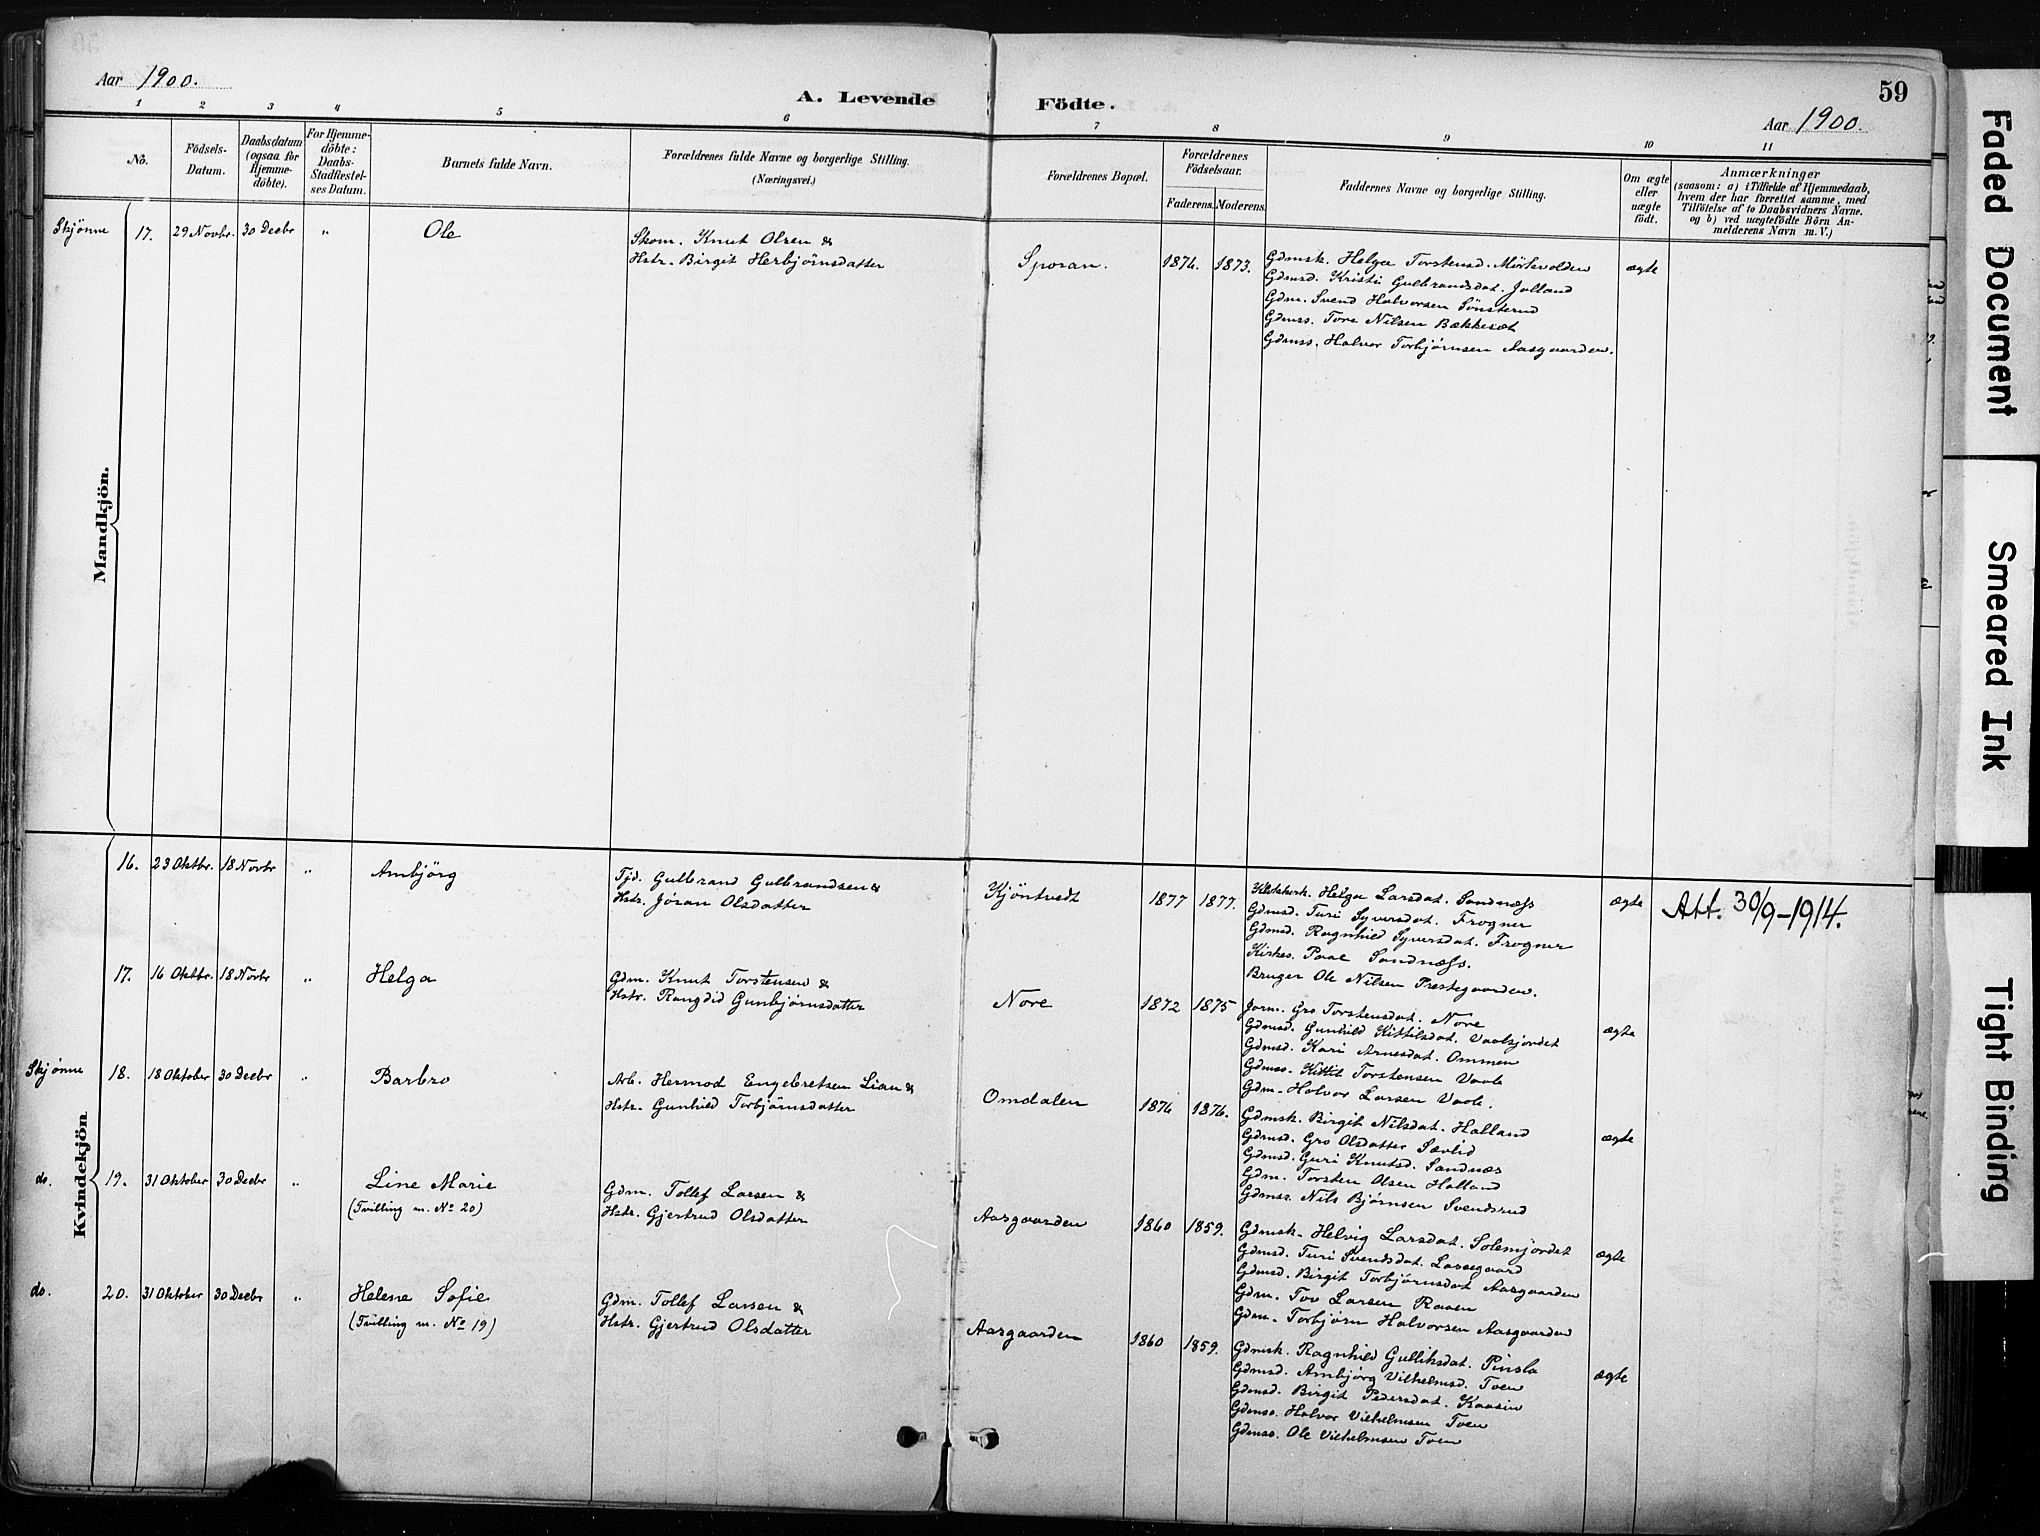 Aar 1900.
A. Levende Födte.
59
Aar 1900.
1 2 3 4 5 6 7 8 9 10 11
No.
Födsels-
Datum.
Daabsdatum
(ogsaa for
Hjemme-
döbte).
For Hjemme-
döbte:
Daabs-
Stadfæstel-
ses Datum.
Barnets fulde Navn.
Forældrenes fulde Navne og borgerlige Stilling.
(Næringsvei.)
Forældrenes Bopæl.
Forældrenes
Födselsaar.
Faderens. Moderens.
Faddernes Navne og borgerlige Stilling.
Om ægte
eller
uægte
födt.
Anmærkninger
(saasom: a) i Tilfælde af Hjemmedaab,
hvem der har forrettet samme, med
Tilföielse af to Daabsvidners Navne.
og b) ved uægtefödte Börn An-
melderens Navn m. V.)
Mandkjön.
Skjønne 17. 29 Novbr. 30 Decbr „ Ole
Skom. Knut Olsen &
Hstr. Birgit Herbjörnsdatter
Sporan. 1876. 1873.
Gdmsk. Helga Torstensd. Mörkvolden
Gdmsd. Kristi Gulbrandsdat. Jolland
Gdm. Svend Halvorsen Sönsterud
Gdmss. Tore Nilsen Bækkesæt
Gdmss. Halvor Torbjørnsen Aasgaarden.
ægte
Kvindekjön
16. 23 Oktbr. 18 Novbr „ Ambjörg
Tjd. Gulbrand Gulbrandsen &
Hstr. Jöran Olsdatter
Kjöntvedt 1877 1877.
Helga Larsdat. Sandnæss
Gdmsd. Turi Syversdat. Frogner
Gdmsd. Ragnhild Syversdat. Frogner
Kirkes. Paal Sandnæss.
Bruger Ole Nilsen Prestegaarden.
ægte
Att. 30/9-1914.
17. 16 Oktbr. 18 Novbr „ Helga
Gdm. Knut Torstensen &
Hstr. Rangdid Gunbjörnsdatter
Nore 1872 1875
Jorm. Gro Torstensdat. Nore
Gdmsd. Gunhild Kittilsdat. Vaalsjordet
Gdmsd. Kari Arnesdat. Ommen
Gdmss. Kittil Torstensen Vaale
Gdm. Halvor Larsen Vaale.
ægte
Skjønne 18. 18 Oktober 30 Decbr „ Barbro
Arb. Hermod Engebretsen Lian &
Hstr. Gunhild Torbjörnsdatter
Omdalen 1876 1876.
Gdmsk. Birgit Nilsdat. Halland
Gdmsd. Gro Olsdatter Sævlid
Gdmsd. Guri Knutsd. Sandnæs
Gdm. Torsten Olsen Halland
Gdmss. Nils Bjørnsen Svendsrud
ægte
do. 19. 31 Oktober 30 Decbr „ Line Marie
(Tvilling m. No 20)
Gdm. Tollef Larsen &
Hstr. Gjertrud Olsdatter
Aasgaarden 1860 1859.
Gdmsk. Helvig Larsdat. Solemjordet
Gdmsd. Turi Svendsdat. Lassegaard
Gdmsd. Birgit Torbjørnsdat Aasgaarden
Gdm. Tov Larsen Raaen
Gdm. Torbjörn Halvorsen Aasgaarden
ægte
do. 20. 31 Oktober 30 Decbr „ Helene Sofie
(Tvilling m. No 19)
Gdm. Tollef Larsen &
Hstr. Gjertrud Olsdatter
Aasgaarden 1860 1859.
Gdmsk. Ragnhild Gulliksdat. Pinsla
Gdmsd. Ambjörg Vilhelmsd. Toen
Gdmsd. Birgit Pedersdat. Kaasin
Gdmss. Halvor Vilhelmsen Toen
Gdmss. Ole Vilhelmsen Toen
ægte
Faded Document
Smeared Ink
Tight Binding